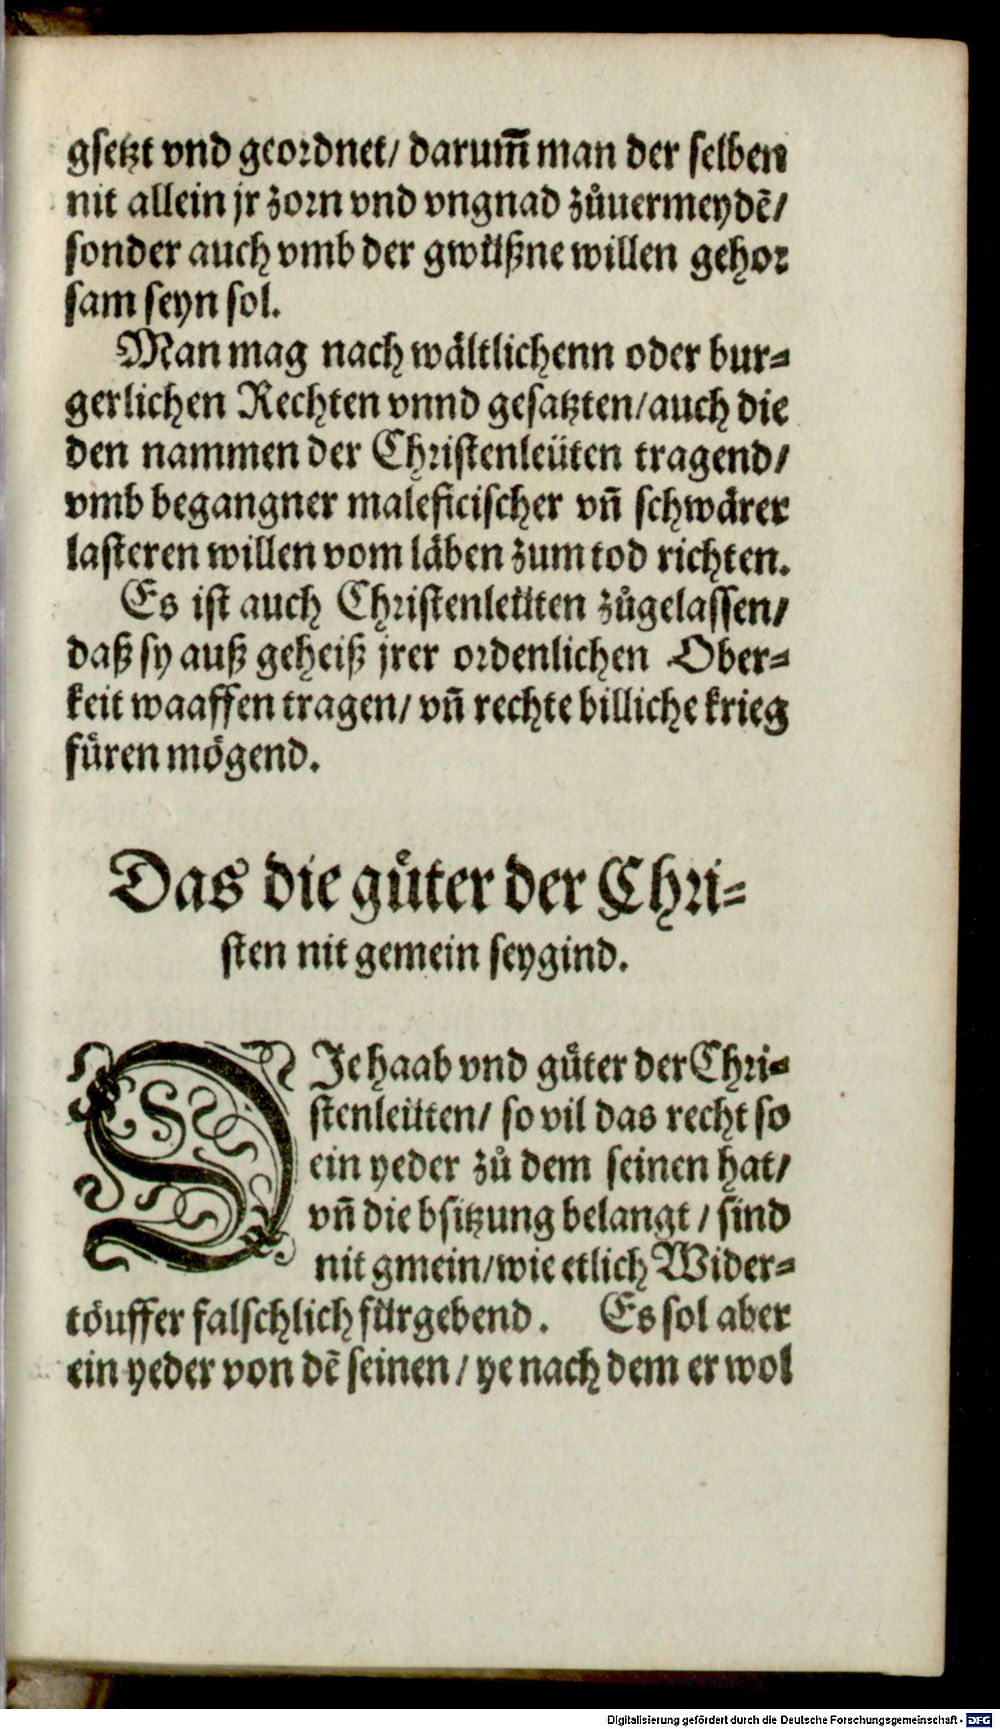 gsetzt vnd geordnet/ darum̃ man der selben
nit allein jr zorn vnd vngnad zůuermeydẽ/
sonder auch vmb der gwüßne willen gehor
sam seyn sol.
Man mag nach wältlichenn oder bur-
gerlichen Rechten vnnd gesatzten/auch die
den nammen der Christenleüten tragend/
vmb begangner maleficischer vñ schwärer
lasteren willen vom läben zum tod richten.
Es ist auch Christenleüten zůgelassen/
daß sy auß geheiß jrer ordenlichen Ober-
keit waaffen tragen/ vñ rechte billiche krieg
füren mögend.
Das die güter der Chri-
sten nit gemein seygind.
DJe haab vnd güter der Chri-
stenleüten/ so vil das recht so
ein yeder zů dem seinen hat/
vñ die bsitzung belangt / sind
nit gmein/wie etlich Wider-
töuffer falschlich fürgebend. Es sol aber
ein yeder von dẽ seinen/ ye nach dem er wol
Digitalisierung gefördert durch die Deutsche Forschungsgemeinschaft - DFG